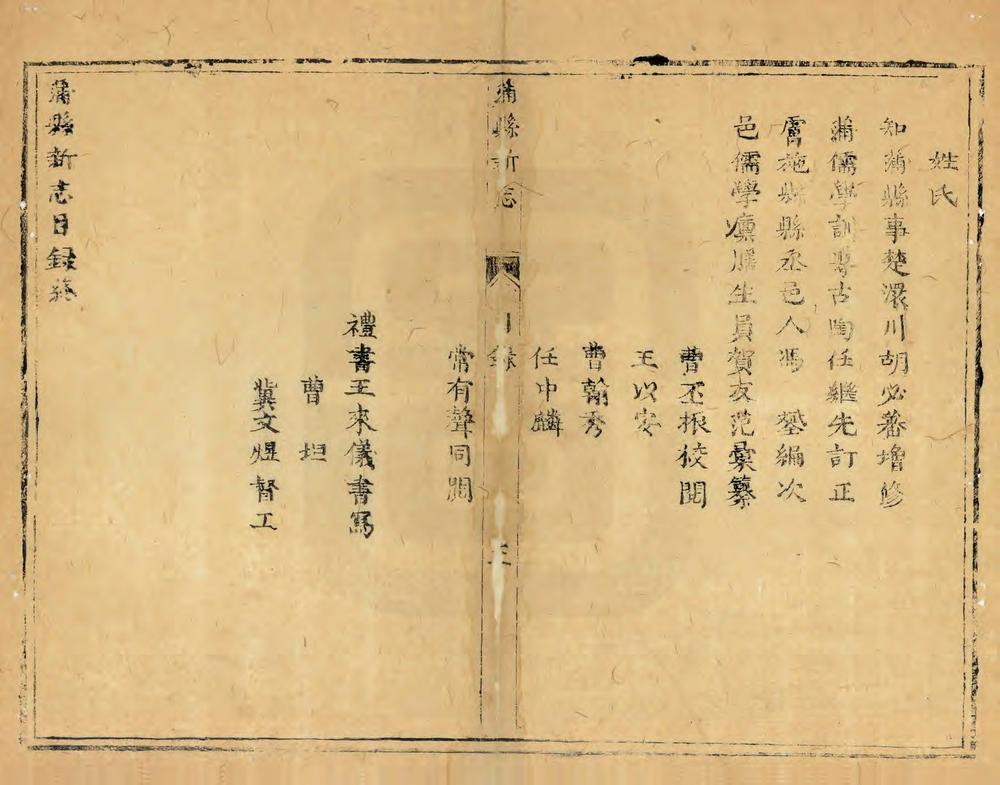 姓氏
知蒲縣事楚澴川胡必蕃增修
蒲儒學訓導古陶任繼先訂正
膚施縣縣丞邑人馮 鏊編次
邑儒學廩膳生員賀友范彙纂
曹丕振校閱
王以安
曹翰秀
任中麟
蒲縣新志
目錄
三
常有聲同閱
禮書王來儀書寫
曹 坦
冀文煜督工
蒲縣新志目錄終